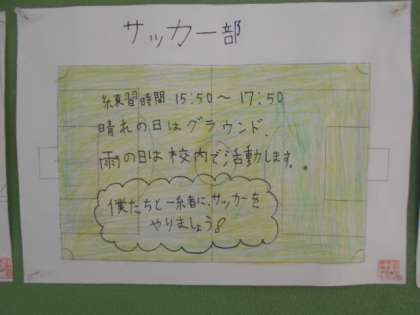 サッカー部
練習時間 15:50〜17:50
晴れの日はグラウンド、
雨の日は校内で活動します。
僕たちと一緒に、サッカーを
やりましょう!